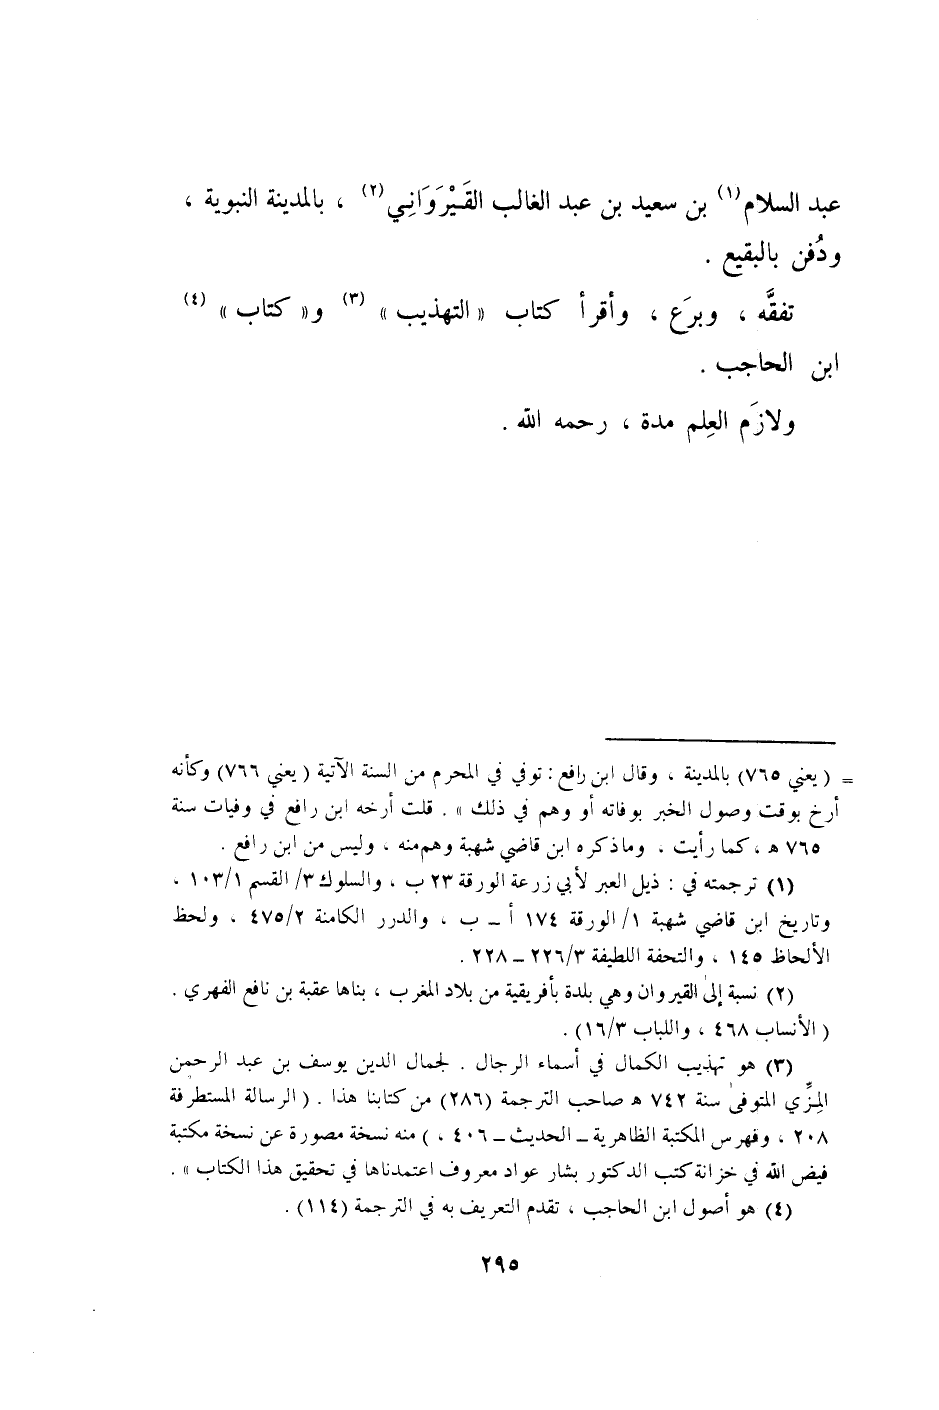 عبد السلام(١) بن سعيد بن عبد الغالب القَـيْرَوَانِي(٢) ، بالمدينة النبوية ،
ودُفن بالبقيع .
تفقَّه ، وبرَع ، وأقرأ كتاب « التهذيب » (٣) و« كتاب » (٤)
ابن الحاجب .
ولازَم العِلم مدة ، رحمه الله .
= ( يعني ٧٦٥) بالمدينة ، وقال ابن رافع : توفي في المحرم من السنة الآتية ( يعني ٧٦٦) وكأنه
أرخ بوقت وصول الخبر بوفاته أو وهم في ذلك » . قلت أرخه ابن رافع في وفيات سنة
٧٦٥ هـ ، كما رأيت ، وماذكره ابن قاضي شهبة وهم منه ، وليس من ابن رافع .
(١) ترجمته في : ذيل العبر لأبي زرعة الورقة ٢٣ ب ، والسلوك ٣/ القسم ١٠٣/١ ،
وتاريخ ابن قاضي شهبة ١/ الورقة ١٧٤ أ ـ ب ، والدرر الكامنة ٤٧٥/٢ ، ولحظ
الألحاظ ١٤٥ ، والتحفة اللطيفة ٢٢٦/٣ ـ ٢٢٨ .
(٢) نسبة إلى القيروان وهي بلدة بأفريقية من بلاد المغرب ، بناها عقبة بن نافع الفهري .
( الأنساب ٤٦٨ ، واللباب ١٦/٣) .
(٣) هو تهذيب الكمال في أسماء الرجال . لجمال الدين يوسف بن عبد الرحمن
المِزِّي المتوفى سنة ٧٤٢ هـ صاحب الترجمة (٢٨٦) من كتابنا هذا . ( الرسالة المستطرفة
٢٠٨ ، وفهرس المكتبة الظاهرية ـ الحديث ـ ٤٠٦ ، ) منه نسخة مصورة عن نسخة مكتبة
فيض الله في خزانة كتب الدكتور بشار عواد معروف اعتمدناها في تحقيق هذا الكتاب » .
(٤) هو أصول ابن الحاجب ، تقدم التعريف به في الترجمة (١١٤) .
٢٩٥